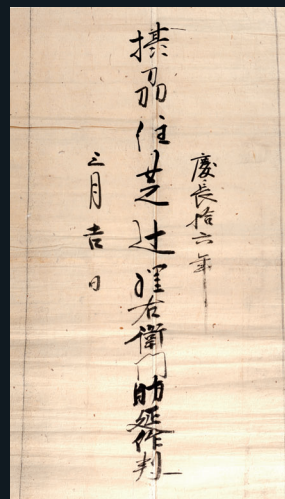 慶長拾六年
摂刕住芝辻理右衛門助延作判
三月吉日